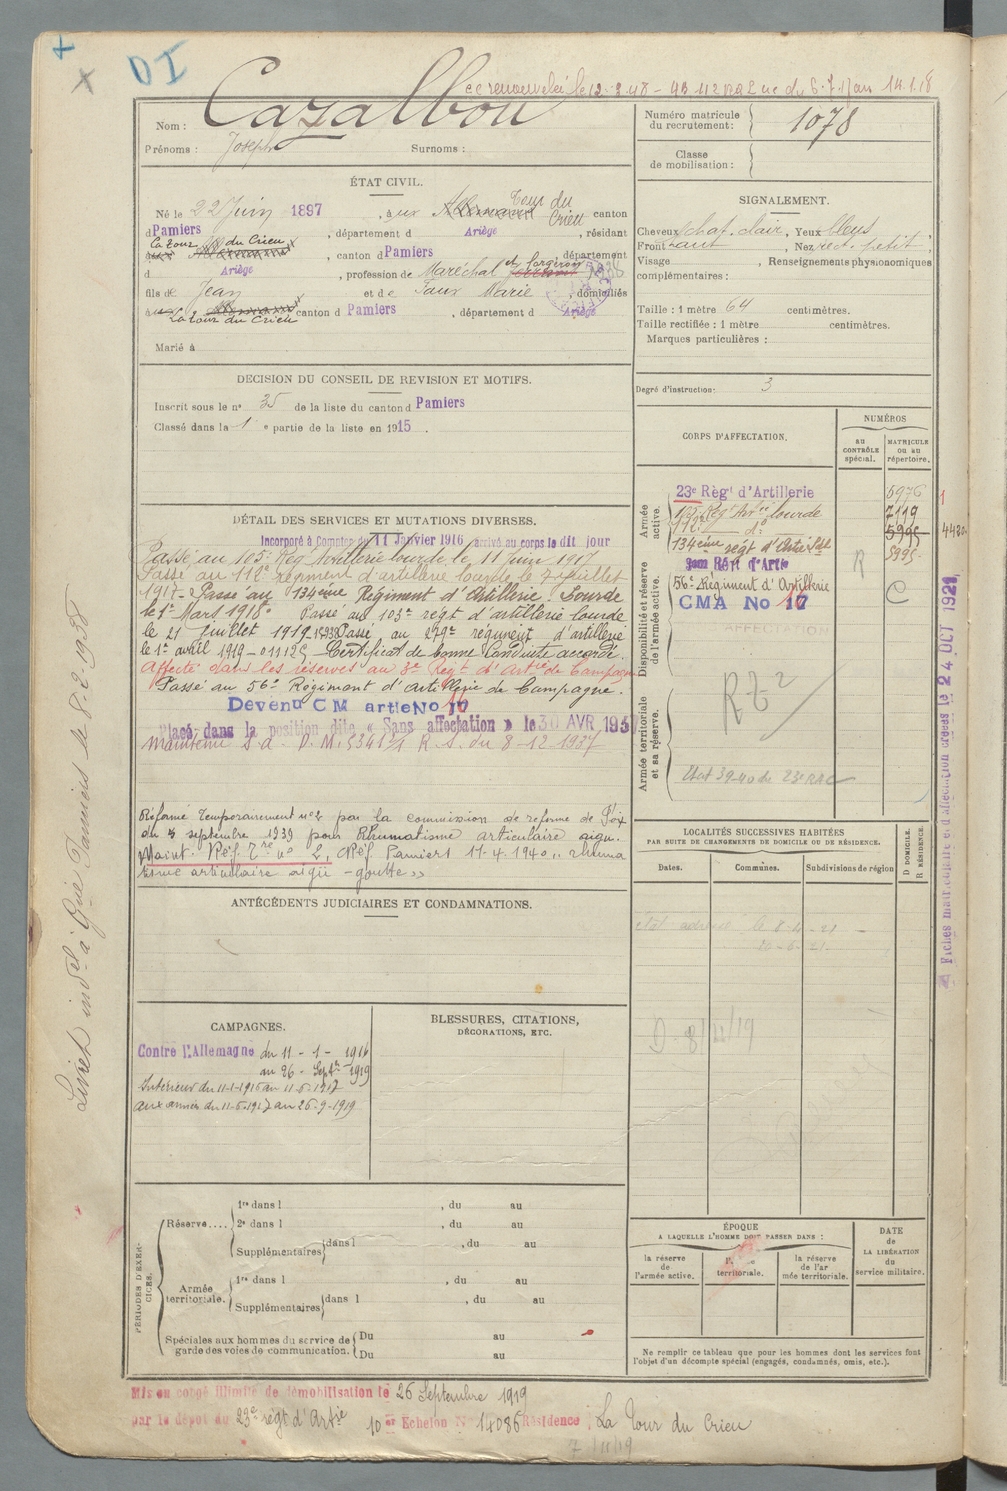 DI
Nom : Cazalbou
Prénoms : Joseph Surnoms :
Numéro matricule du recrutement : 1078
Classe de mobilisation :
ÉTAT CIVIL.
Né le 22 Juin 1897, à La Tour du Crieu canton
d Pamiers, département d Ariège, résidant
La Tour du Crieu, canton d Pamiers département
d Ariège, profession de Maréchal et forgeron
fils de Jean et de Marie, domiciliés
La tour du Crieu canton d Pamiers, département d Ariège
Marié à
SIGNALEMENT.
Cheveux chat. clair, Yeux bleus
Front haut, Nez rect. petit
Visage , Renseignements physionomiques
complémentaires :
Taille : 1 mètre 64 centimètres.
Taille rectifiée : 1 mètre centimètres.
Marques particulières :
Degré d'instruction : 3
DECISION DU CONSEIL DE REVISION ET MOTIFS.
Inscrit sous le n° 35 de la liste du canton d Pamiers
Classé dans la 1e partie de la liste en 1915.
DÉTAIL DES SERVICES ET MUTATIONS DIVERSES.
Incorporé à Compter du 11 Janvier 1916 arrivé au corps le dit jour
Passé au 105e Rég Artillerie lourde le 11 Juin 1917
Passé au 112e régiment d'artillerie lourde le 7 juillet
1917 - Passé au 134ème Régiment d'Artillerie Lourde
le 1er Mars 1918. Passé au 103e régt d'artillerie lourde
le 21 Juillet 1919. Passé au 279e régiment d'artillerie
le 1er avril 1919 - Certificat de bonne Conduite accordé.
Affecté dans les réserves au 3e Régt d'Artie de Campagne
Passé au 56e Régiment d'Artillerie de Campagne.
Devenu CM artie No 17
Placé dans la position dite « Sans affectation » le 30 AVR 193
Maintenu S.a. D.M. R.S. du 8-12-1937
Réformé Temporairement n°2 par la commission de réforme de Foix
du septembre 1939 pour Rhumatisme articulaire aigu.
Maint. Réf. Tre n° 2, CRéf. Pamiers 11-4-1940, rhuma
tisme articulaire aigü - goutte »
CORPS D'AFFECTATION.
NUMÉROS
AU CONTRÔLE spécial.
MATRICULE ou au répertoire.
Armée active.
23e Régt d'Artillerie 5976
Régt Artie lourde 7119
112e do 5995
134ème régt d'Artie Lde 5995
Disponibilité et réserve de l'armée active.
3em Régt d'Artie
56e Régiment d'Artillerie
CMA No 17
R
C
Armée territoriale et sa réserve.
Etat 39-40 du 23e RAC
Fiches matricule et d'affectation créées le 24 OCT 1921
LOCALITÉS SUCCESSIVES HABITÉES
PAR SUITE DE CHANGEMENTS DE DOMICILE OU DE RÉSIDENCE.
Dates. Communes. Subdivisions de région D DOMICILE. R RÉSIDENCE.
ANTÉCÉDENTS JUDICIAIRES ET CONDAMNATIONS.
CAMPAGNES.
Contre l'Allemagne du 11 - 1 - 1916
au 26 - Septre 1919
Intérieur du 11-1-1916 au 11-6-1917
aux armées du 11-6-1917 au 26-9-1919
BLESSURES, CITATIONS,
DÉCORATIONS, ETC.
PÉRIODES D'EXERCICES.
Réserve.... 1re dans l , du au
2e dans l , du au
Supplémentaires dans l , du au
Armée territoriale. 1re dans l , du au
Supplémentaires dans l , du au
Spéciales aux hommes du service de garde des voies de communication. Du au
Du au
ÉPOQUE
A LAQUELLE L'HOMME DOIT PASSER DANS :
la réserve de l'armée active.
territoriale.
la réserve de l'ar mée territoriale.
DATE de LA LIBÉRATION du service militaire.
Ne remplir ce tableau que pour les hommes dont les services font
l'objet d'un décompte spécial (engagés, condamnés, omis, etc.).
Mis en congé illimité de démobilisation le 26 Septembre 1919
par le dépôt du 23e régt d'Artie 10e Echelon N° 14086 Résidence : La Tour du Crieu